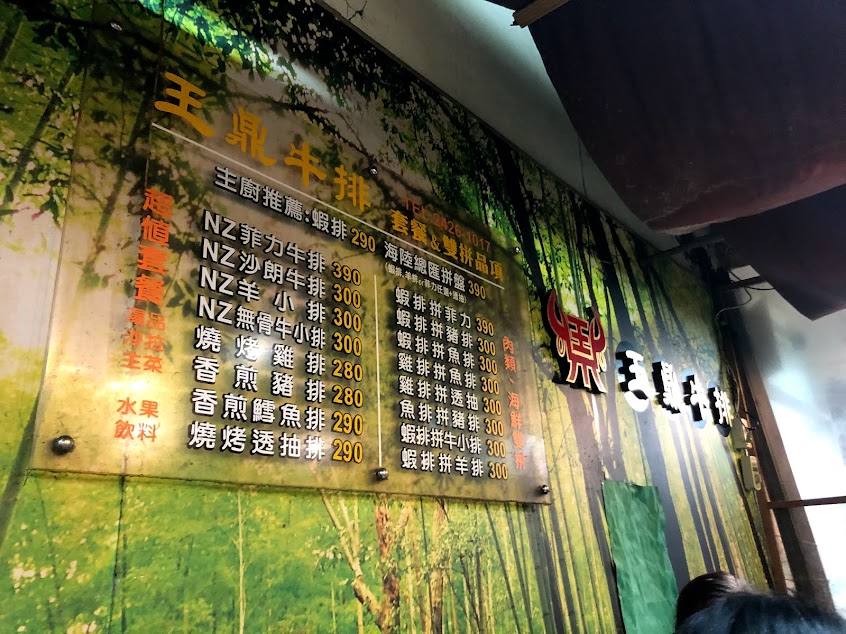 王鼎牛排
TEL:2426-1017
主廚推薦:蝦排 290
NZ菲力牛排 390
NZ沙朗牛排 300
NZ羊小排 300
NZ無骨牛小排 300
燒烤雞排 280
香煎豬排 280
香煎鱈魚排 290
燒烤透抽排 290
套餐&雙拼品項
海陸總匯拼盤 390
蝦排拼菲力 390
蝦排拼豬排 300
蝦排拼魚排 300
雞排拼魚排 300
雞排拼透抽 300
魚排拼豬排 300
蝦排拼牛小排 300
蝦排拼羊排 300
超值套餐
主菜
水果
飲料
肉類、海鮮雙拼
王鼎牛排